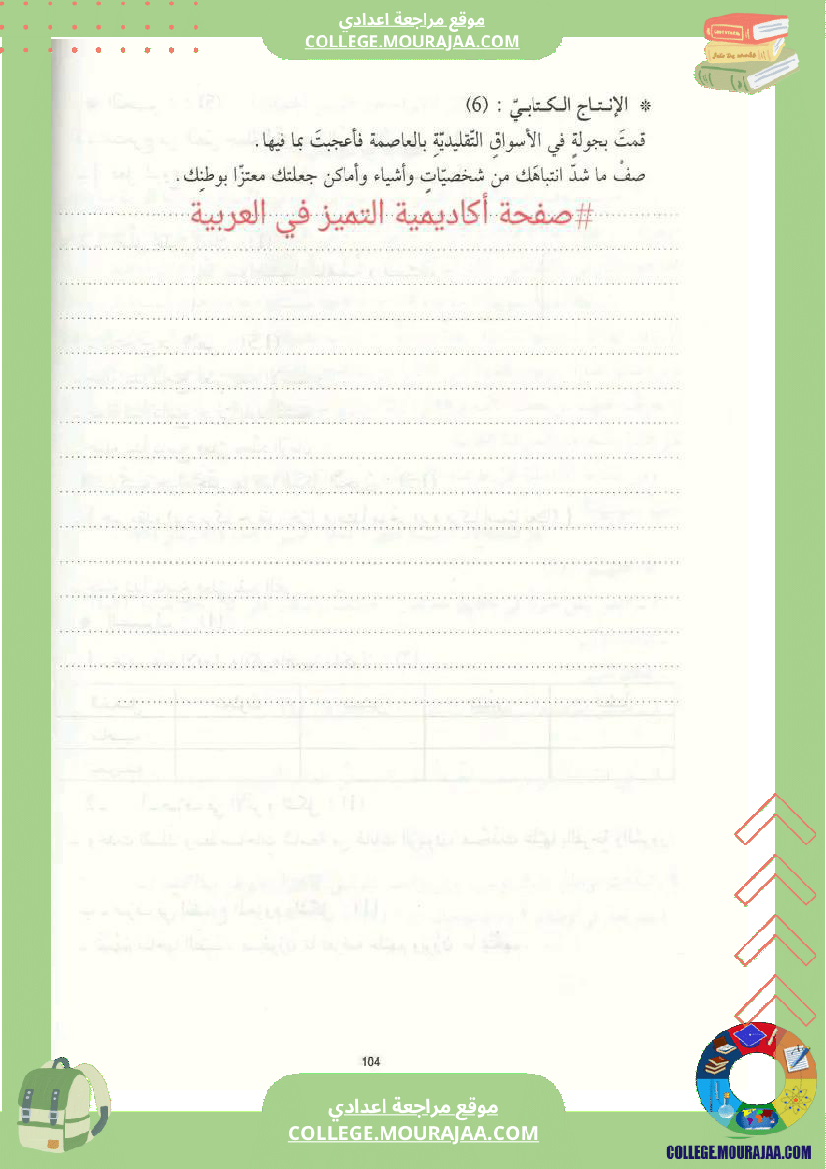 موقع مراجعة اعدادي
COLLEGE.MOURAJAA.COM
* الإنتاج الكتابيّ : (6)
قمتَ بجولةٍ في الأسواقِ التّقليديّةِ بالعاصمة فأعجبتَ بما فيها.
صفْ ما شدّ انتباهَك من شخصيّاتٍ وأشياء وأماكن جعلتك معتزّا بوطنِك.
#صفحة أكاديمية التميز في العربية
104
موقع مراجعة اعدادي
COLLEGE.MOURAJAA.COM
COLLEGE.MOURAJAA.COM